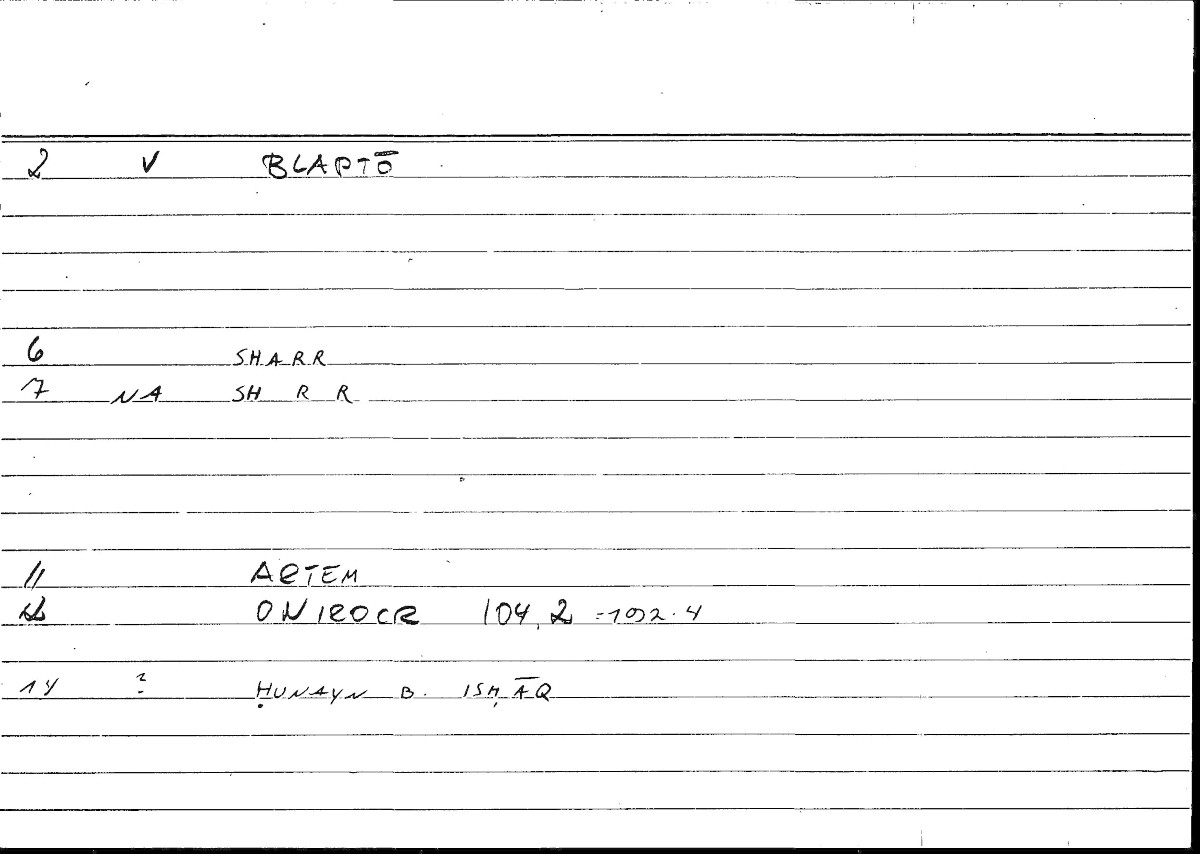 2 V BLAPTŌ
6 SHARR
7 NA SH R R
11 ARTEM
12 ONIROCR 104,2 =192.4
14 ? ḤUNAYN B. ISḤĀQ